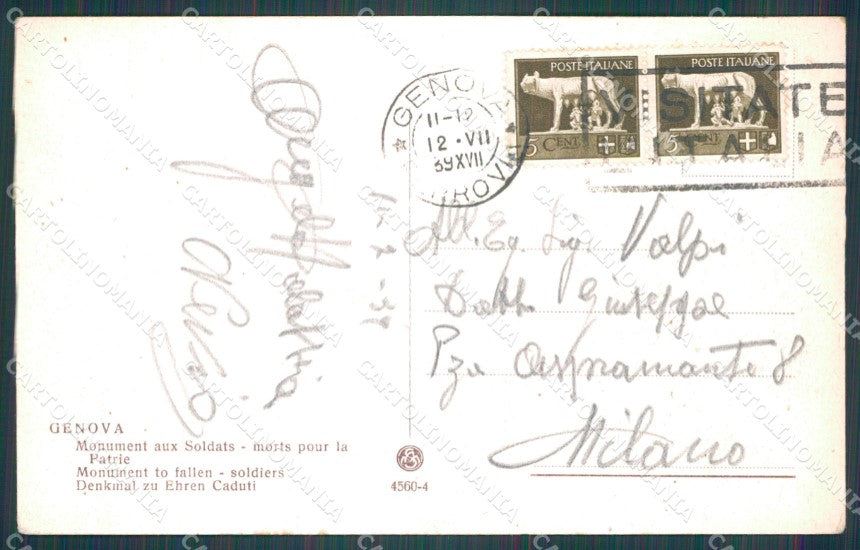 POSTE ITALIANE
5 CENT.
POSTE ITALIANE
5 CENT.
GENOVA
11-12
12·VII
39XVII
VISITATE
ITALIA
12-7-39
All. Eg. Sig. Volpi
Dott. Giuseppe
Pza Aspromonte 8
Milano
GENOVA
Monument aux Soldats - morts pour la
Patrie
Monument to fallen - soldiers
Denkmal zu Ehren Caduti
4560-4
CARTOLINOMANIA